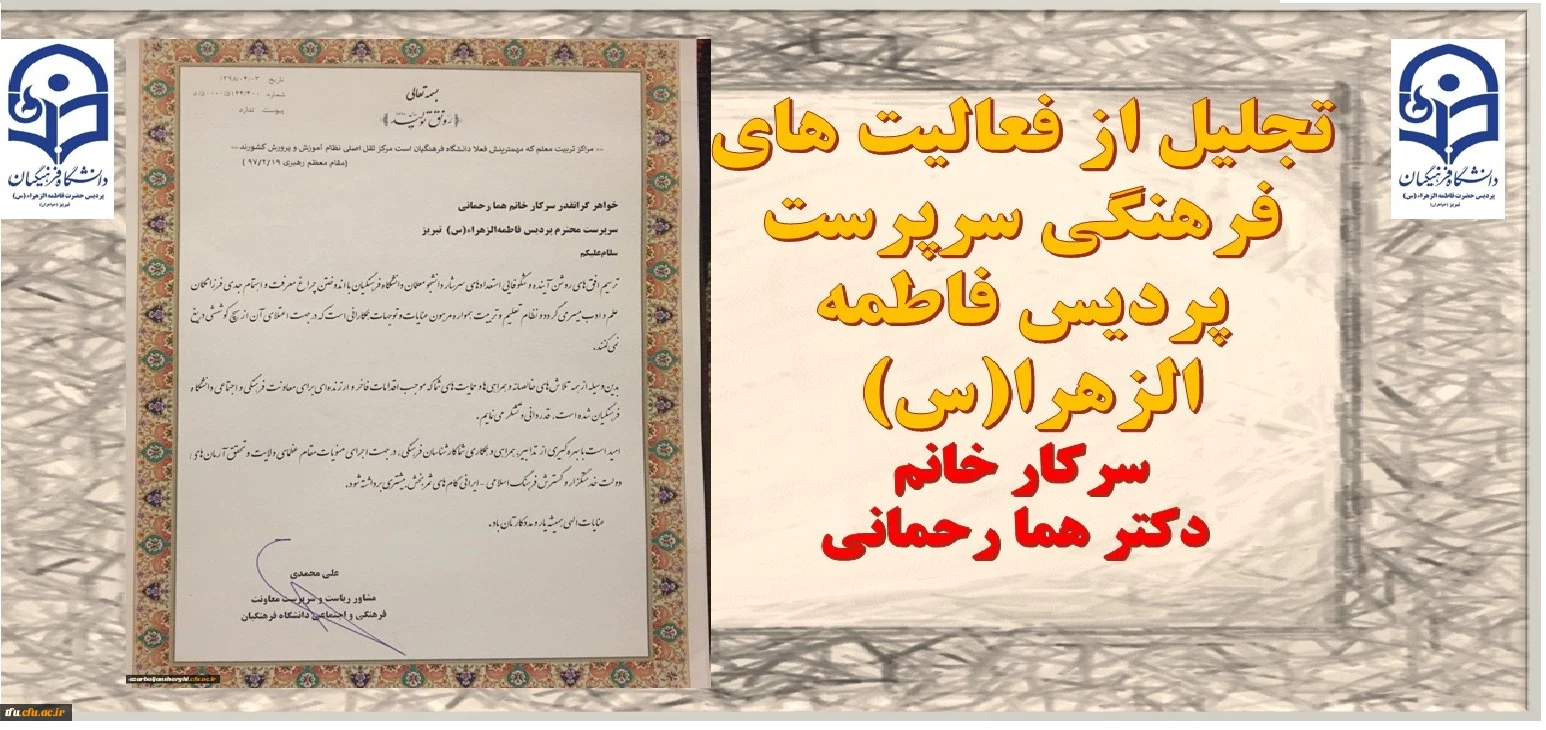 تجلیل از فعالیت های
فرهنگی سرپرست
پردیس فاطمه
الزهرا(س)
سرکار خانم
دکتر هما رحمانی
دانشگاه فرهنگیان
پردیس حضرت فاطمه الزهراء (س)
تبریز (خواهران)
دانشگاه فرهنگیان
پردیس حضرت فاطمه الزهراء (س)
تبریز (خواهران)
تاریخ ۱۳۹۸/۰۴/۰۳
شماره ۵۰۰۰۰/۵۱۴۴/۴۰۰/
پیوست ندارد
بسمه تعالی
رونق تولید
--- مراکز تربیت معلم که مهمترینش فعلا دانشگاه فرهنگیان است مرکز ثقل اصلی نظام آموزش و پرورش کشورند ---
(مقام معظم رهبری ۹۷/۲/۱۹ )
خواهر گرانقدر سرکار خانم هما رحمانی
سرپرست محترم پردیس فاطمه‌الزهراء(س) تبریز
سلام‌علیکم
ترسیم افق‌های روشن آینده و شکوفایی استعدادهای سرشار دانشجو معلمان دانشگاه فرهنگیان با اندوختن چراغ معرفت و اهتمام جدی فرزانگان
علم و ادب میسر می گردد و نظام تعلیم و تربیت همواره مرهون عنایات و توجهات همکارانی است که در جهت اعتلای آن از هیچ کوششی دریغ
نمی کنند.
بدین وسیله از همه تلاش‌های خالصانه و همراهی ها و حمایت های شما که موجب اقدامات فاخر و ارزنده‌ای برای معاونت فرهنگی و اجتماعی دانشگاه
فرهنگیان شده است، قدردانی و تشکر می نمایم.
امید است با بهره گیری از تدابیر، همراهی و همکاری شما کارشناسان فرهنگی، در جهت اجرای منویات مقام عظمای ولایت و تحقق آرمان های
دولت خدمتگزار و گسترش فرهنگ اسلامی - ایرانی گام های ثمربخش بیشتری برداشته شود.
عنایات الهی همیشه یار و مددکارتان باد.
علی محمدی
مشاور ریاست و سرپرست معاونت
فرهنگی و اجتماعی دانشگاه فرهنگیان
azarbaijansharghi.cfu.ac.ir
tfu.cfu.ac.ir